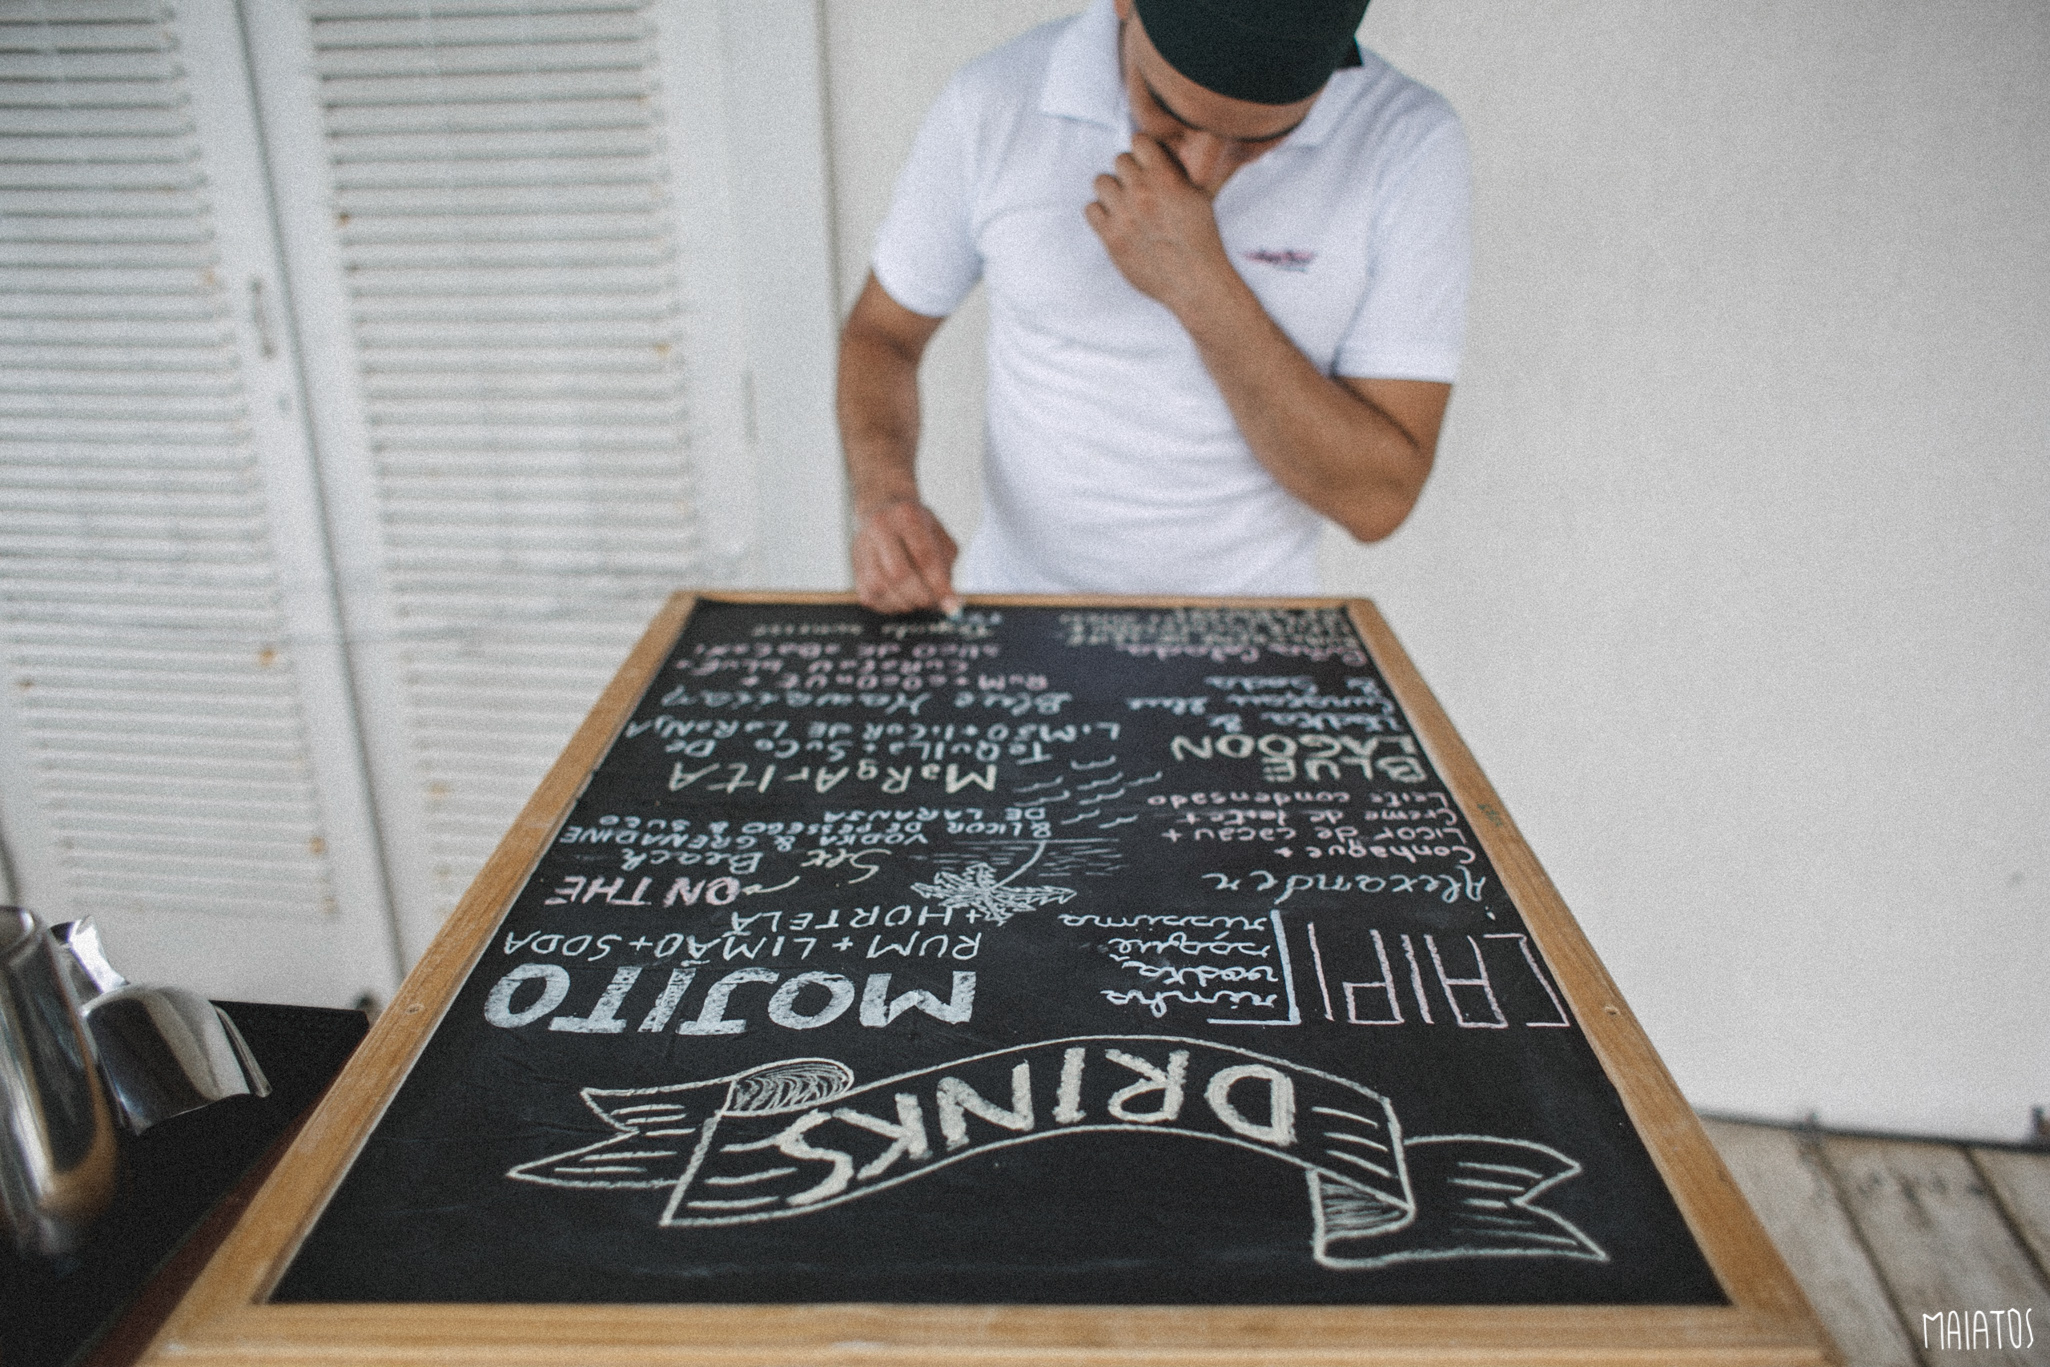 DRINKS
CAIPI
rinha
vodka
saque
rissima
Alexander
Conhaque +
Licor de cacau +
Creme de leite +
Leite condensado
BLUE
LAGOON
Vodka &
Curaçau Blue
& Soda
Piña Colada
MOJITO
RUM + LIMÃO + SODA
+ HORTELÃ
Sex ON THE
Beach
VODKA & GRENADINE
& LICOR DE PESSEGO & SUCO
DE LARANJA
MaRgArItA
TeQUILa + SuCo De
LIMãO + lICOR DE LaRaNJA
Blue Hawaiian
RUM + COCONUT +
CURAÇAU BLUE +
SUCO DE ABACAXI
MAIATOS